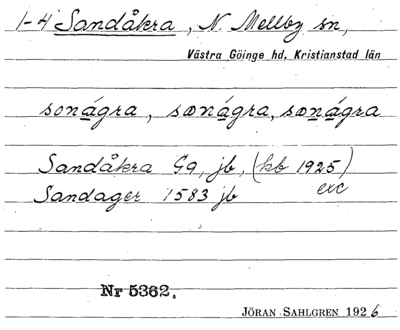 1-4 Sandåkra, N. Mellby sn,
Västra Göinge hd, Kristianstad län
sonágra, sonágra, sonágra
Sandåkra Gg, jb, (kb 1925)
exc
Sandager 1583 jb
Nr 5362.
JÖRAN SAHLGREN 1926